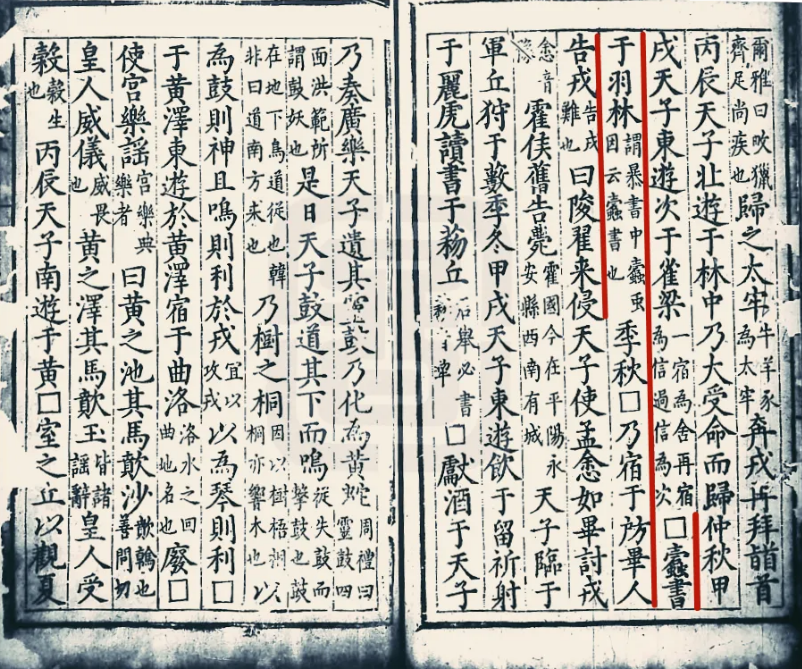 爾雅曰畋獵齊足尚疾也歸之太牢牛羊豕為太牢奔戎再拜䭫首
丙辰天子北遊于林中乃大受命而歸仲秋甲
戌天子東遊次于雀梁一宿為舍再宿為信過信為次□蠹書
于羽林謂暴書中蠹䖝因云蠹書也季秋□乃宿于防畢人
告戎告戎難也曰陵翟来侵天子使孟悆如畢討戎
悆音霍侯舊告薨霍國今在平陽永安縣西南有城天子臨于
軍丘狩于藪季冬甲戌天子東遊飲于留祈射
于麗虎讀書于丘舉必書□獻酒于天子
乃奏廣樂天子遺其靈鼓乃化為黃蛇周禮曰靈鼓四
面洪範所謂鼓妖也是日天子鼓道其下而鳴從失鼓而擊鼓也鼓
在地下鳥道從也韓非曰道南方来也乃樹之桐因以樹梧桐桐亦響木也以
為鼓則神且鳴則利於戎宜以攻戎以為琴則利□
于黃澤東遊於黃澤宿于曲洛洛水之回曲地名也廢□
使宮樂謠宮樂典樂者曰黃之池其馬歕沙歕翰也善問切
皇人威儀威畏也黃之澤其馬歕玉皆諸謠辭皇人受
穀穀生也丙辰天子南遊于黃□室之丘以觀夏